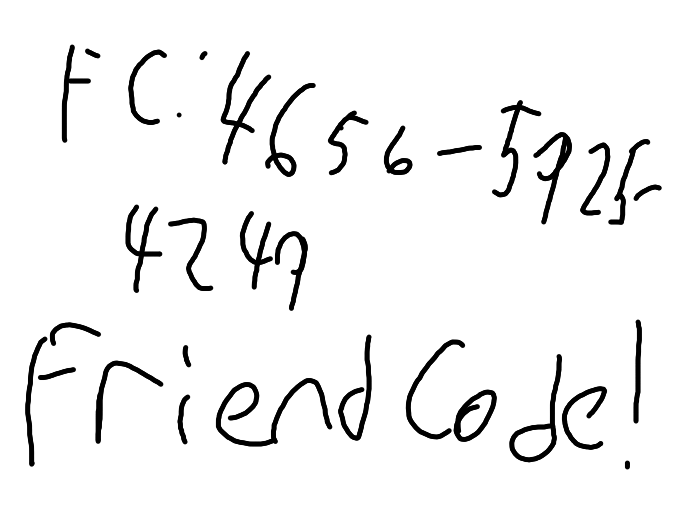 FC: 4656-5925-
4249
Friend Code!